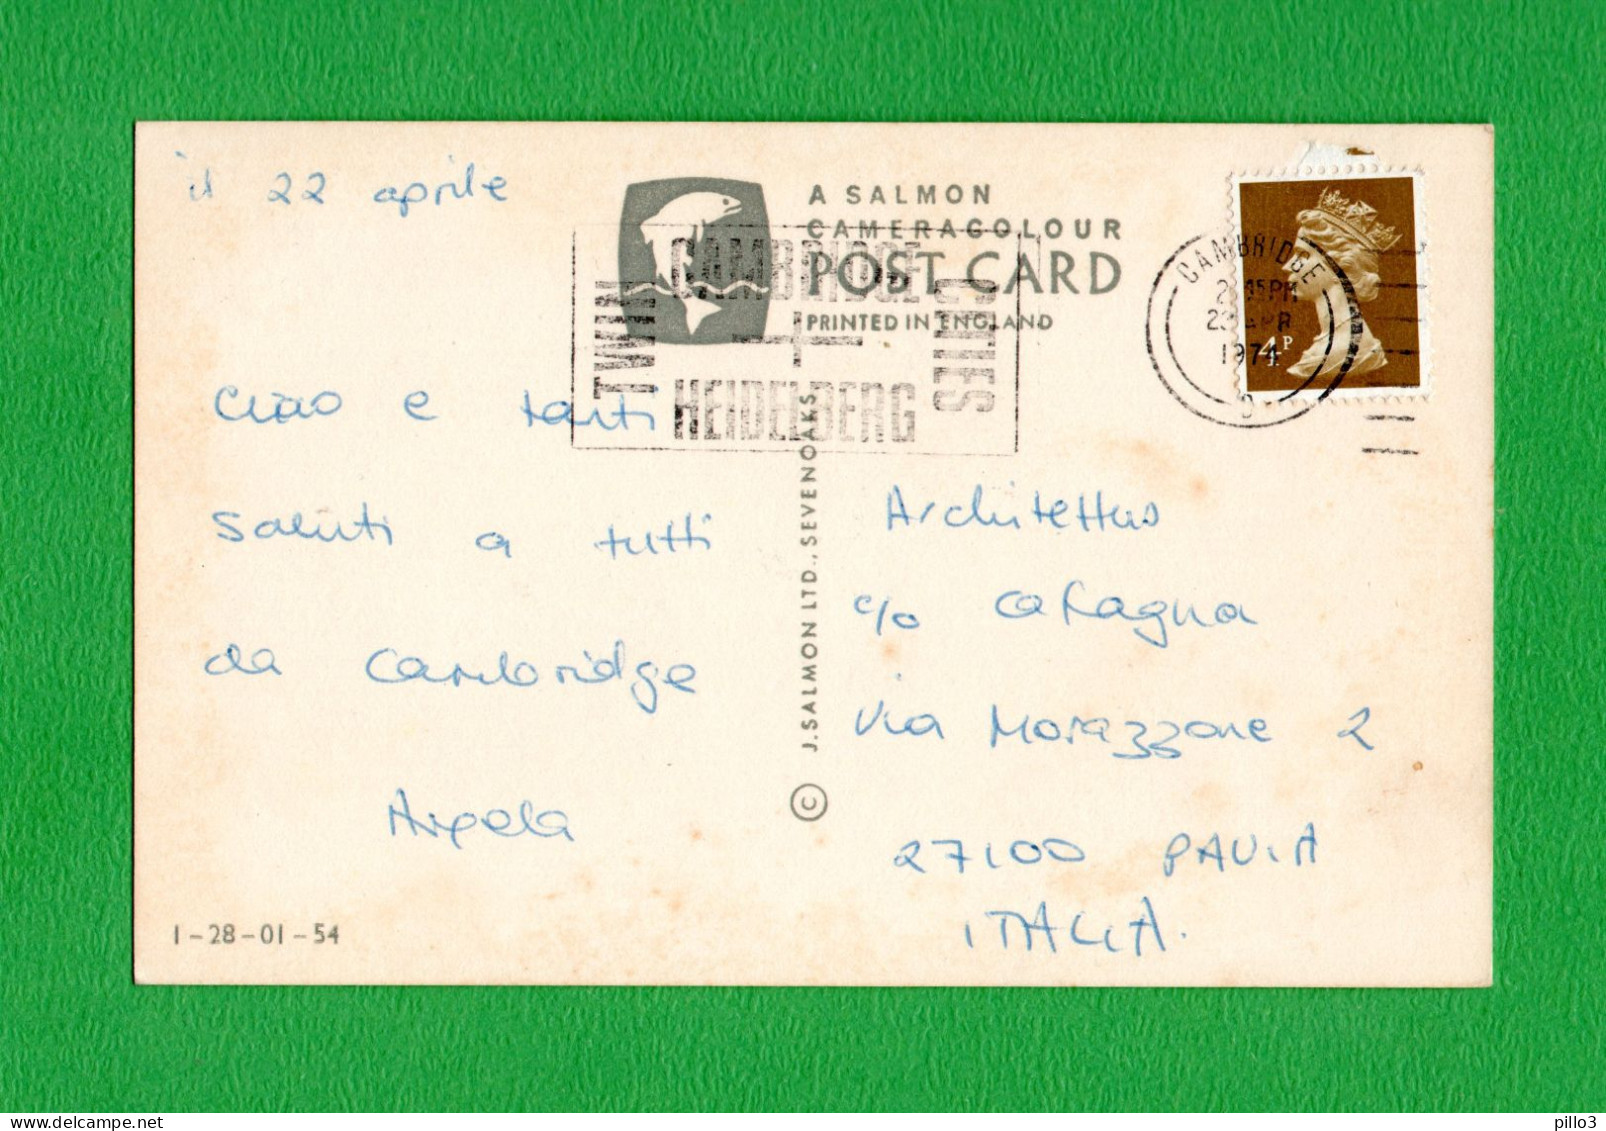 il 22 aprile
A SALMON
CAMERACOLOUR
POST CARD
PRINTED IN ENGLAND
TWIN
CAMBRIDGE
HEIDELBERG
CITIES
CAMBRIDGE
1974
4P
Ciao e tanti
saluti a tutti
da Cambridge
Angela
1-28-01-54
© J. SALMON LTD., SEVENOAKS
c/o
Via Morazzone 2
27100 PAVIA
ITALIA.
pillo3